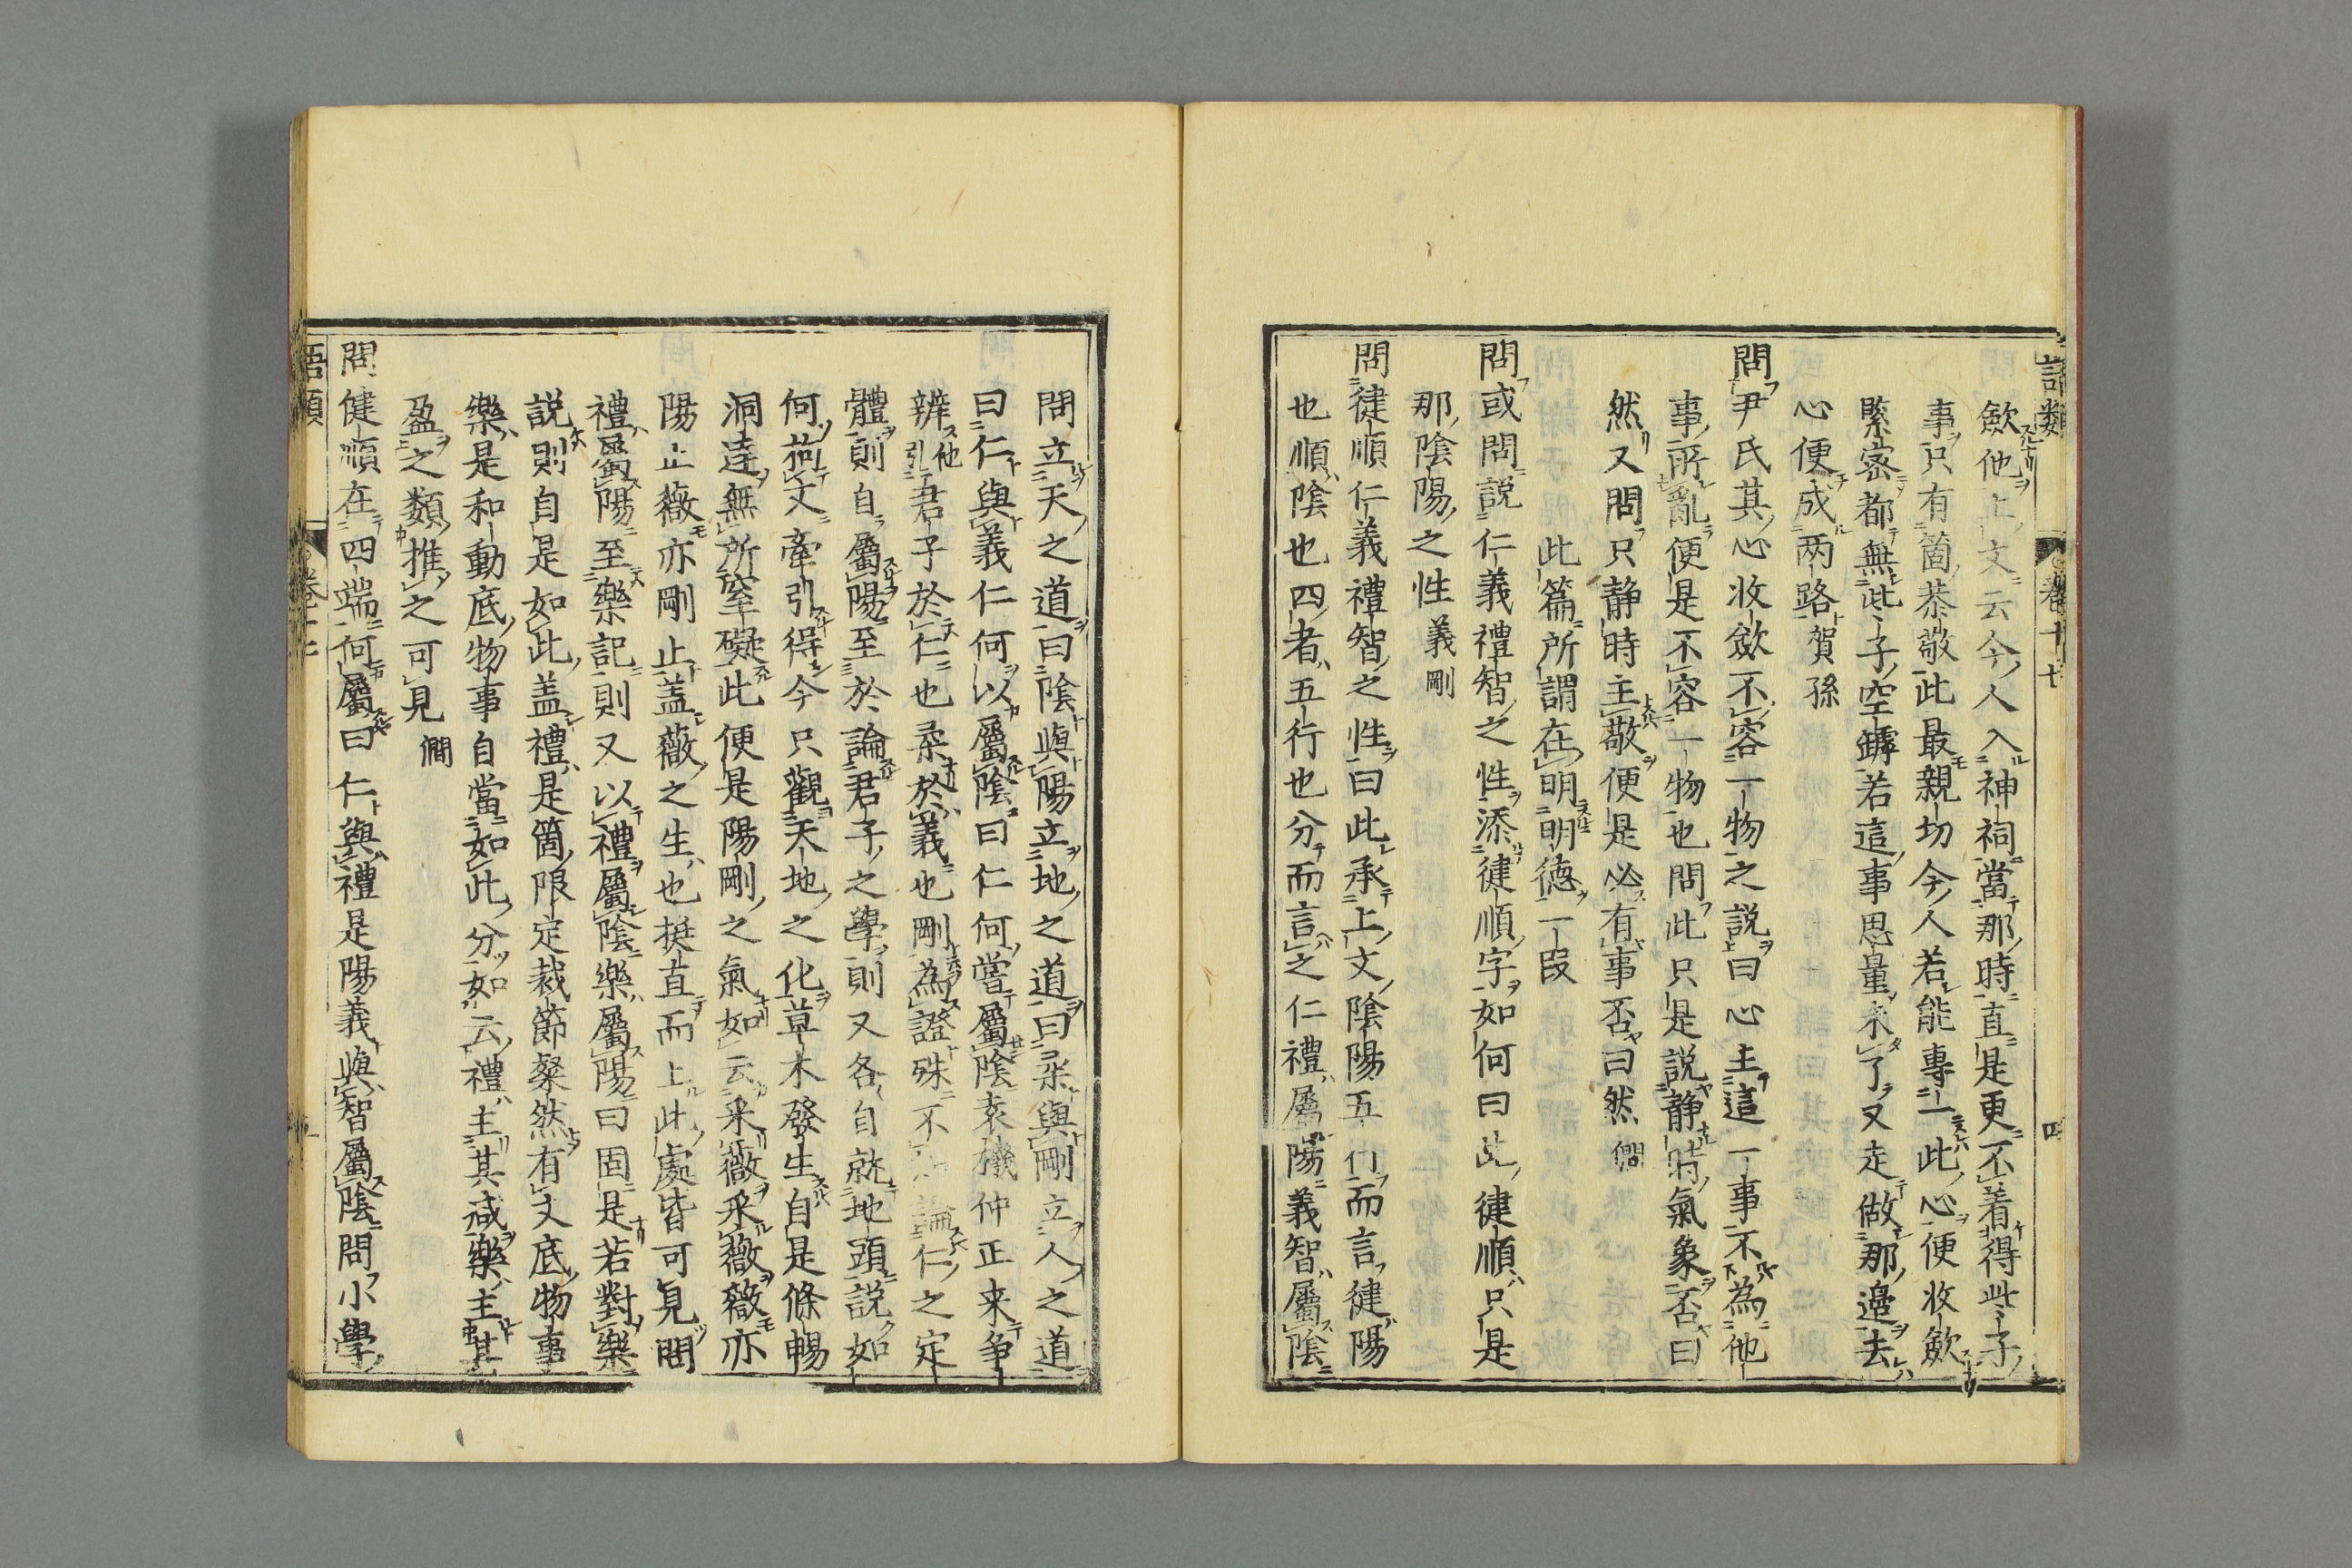 語類 卷十七 四
斂他上文云今人入神祠當那時直是更不着得些子
事只有箇恭敬此最親切今人若能專一此心便收斂
緊密都無些子空罅若這事思量未了又走做那邊去
心便成两路賀孫
問尹氏其心收斂不容一物之説曰心主這一事不為他
事所亂便是不容一物也問此只是説静時氣象否曰
然又問只静時主敬便是必有事否曰然僩
此篇所謂在明明德一段
問或問説仁義禮智之性添健順字如何曰此健順只是
那陰陽之性義剛
問健順仁義禮智之性曰此承上文陰陽五行而言健陽
也順陰也四者五行也分而言之仁禮屬陽義智屬陰
問立天之道曰陰與陽立地之道曰柔與剛立人之道
曰仁與義仁何以屬陰曰仁何嘗屬陰袁機仲正来争
辨他引君子於仁也柔於義也剛為證殊不論仁之定
體則自屬陽至於論君子之學則又各自就地頭説如
何拘文牽引得今只觀天地之化草木發生自是條暢
洞達無所窒礙此便是陽剛之氣如云采薇采薇薇亦
陽止薇亦剛止盖薇之生也挺直而上此處皆可見問
禮屬陽至樂記則又以禮屬陰樂屬陽曰固是若對樂
説則自是如此盖禮是箇限定裁節粲然有文底物事
樂是和動底物事自當如此分如云禮主其減樂主其
盈之類推之可見僩
問健順在四端何屬曰仁與禮是陽義與智屬陰問小學
語類 卷十七